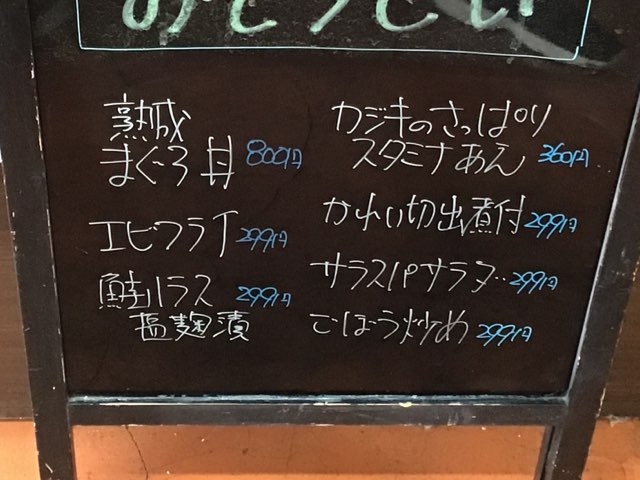 熟成
まぐろ丼 800円
エビフライ 299円
鮭ハラス 299円
塩麹漬
カジキのさっぱり
スタミナあえ 360円
かれい切出煮付 299円
サラスパサラダ 299円
ごぼう炒め 299円